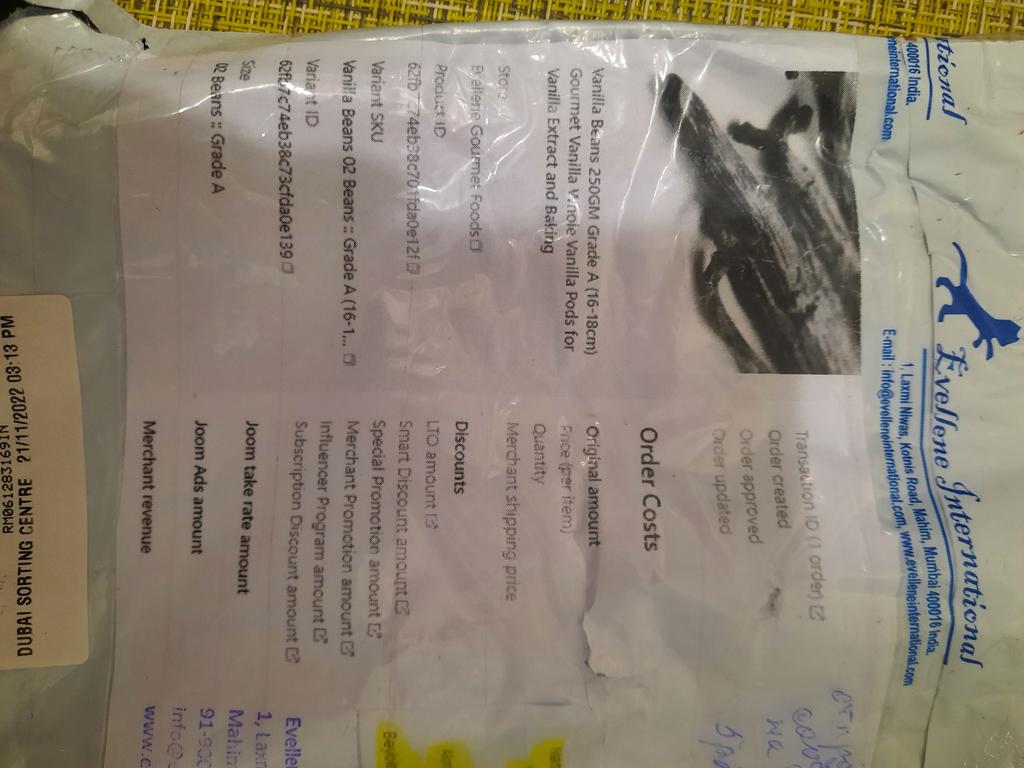 tional
400016 India.
eneinternational.com
Evellene International
1, Laxmi Niwas, Kotnis Road, Mahim, Mumbai 400016 India.
E-mail : info@evelleneinternational.com, www.evelleneinternational.com
Vanilla Beans 250GM Grade A (16-18cm)
Gourmet Vanilla Whole Vanilla Pods for
Vanilla Extract and Baking
Store
Evellene Gourmet Foods
Product ID
Variant SKU
Vanilla Beans 02 Beans :: Grade A (16-1...
Variant ID
62fb7c74eb38c73cfda0e139
Size
02 Beans :: Grade A
Transaction ID (1 order)
Order created
Order approved
Order updated
Order Costs
Original amount
Price (per item)
Quantity
Merchant shipping price
Discounts
LTO amount
Smart Discount amount
Special Promotion amount
Merchant Promotion amount
Influencer Program amount
Subscription Discount amount
Joom take rate amount
Joom Ads amount
Merchant revenue
Evelle
1, Lax
Mahim
info@
www.e
RM861283169IN
DUBAI SORTING CENTRE 21/11/2022 03:13 PM